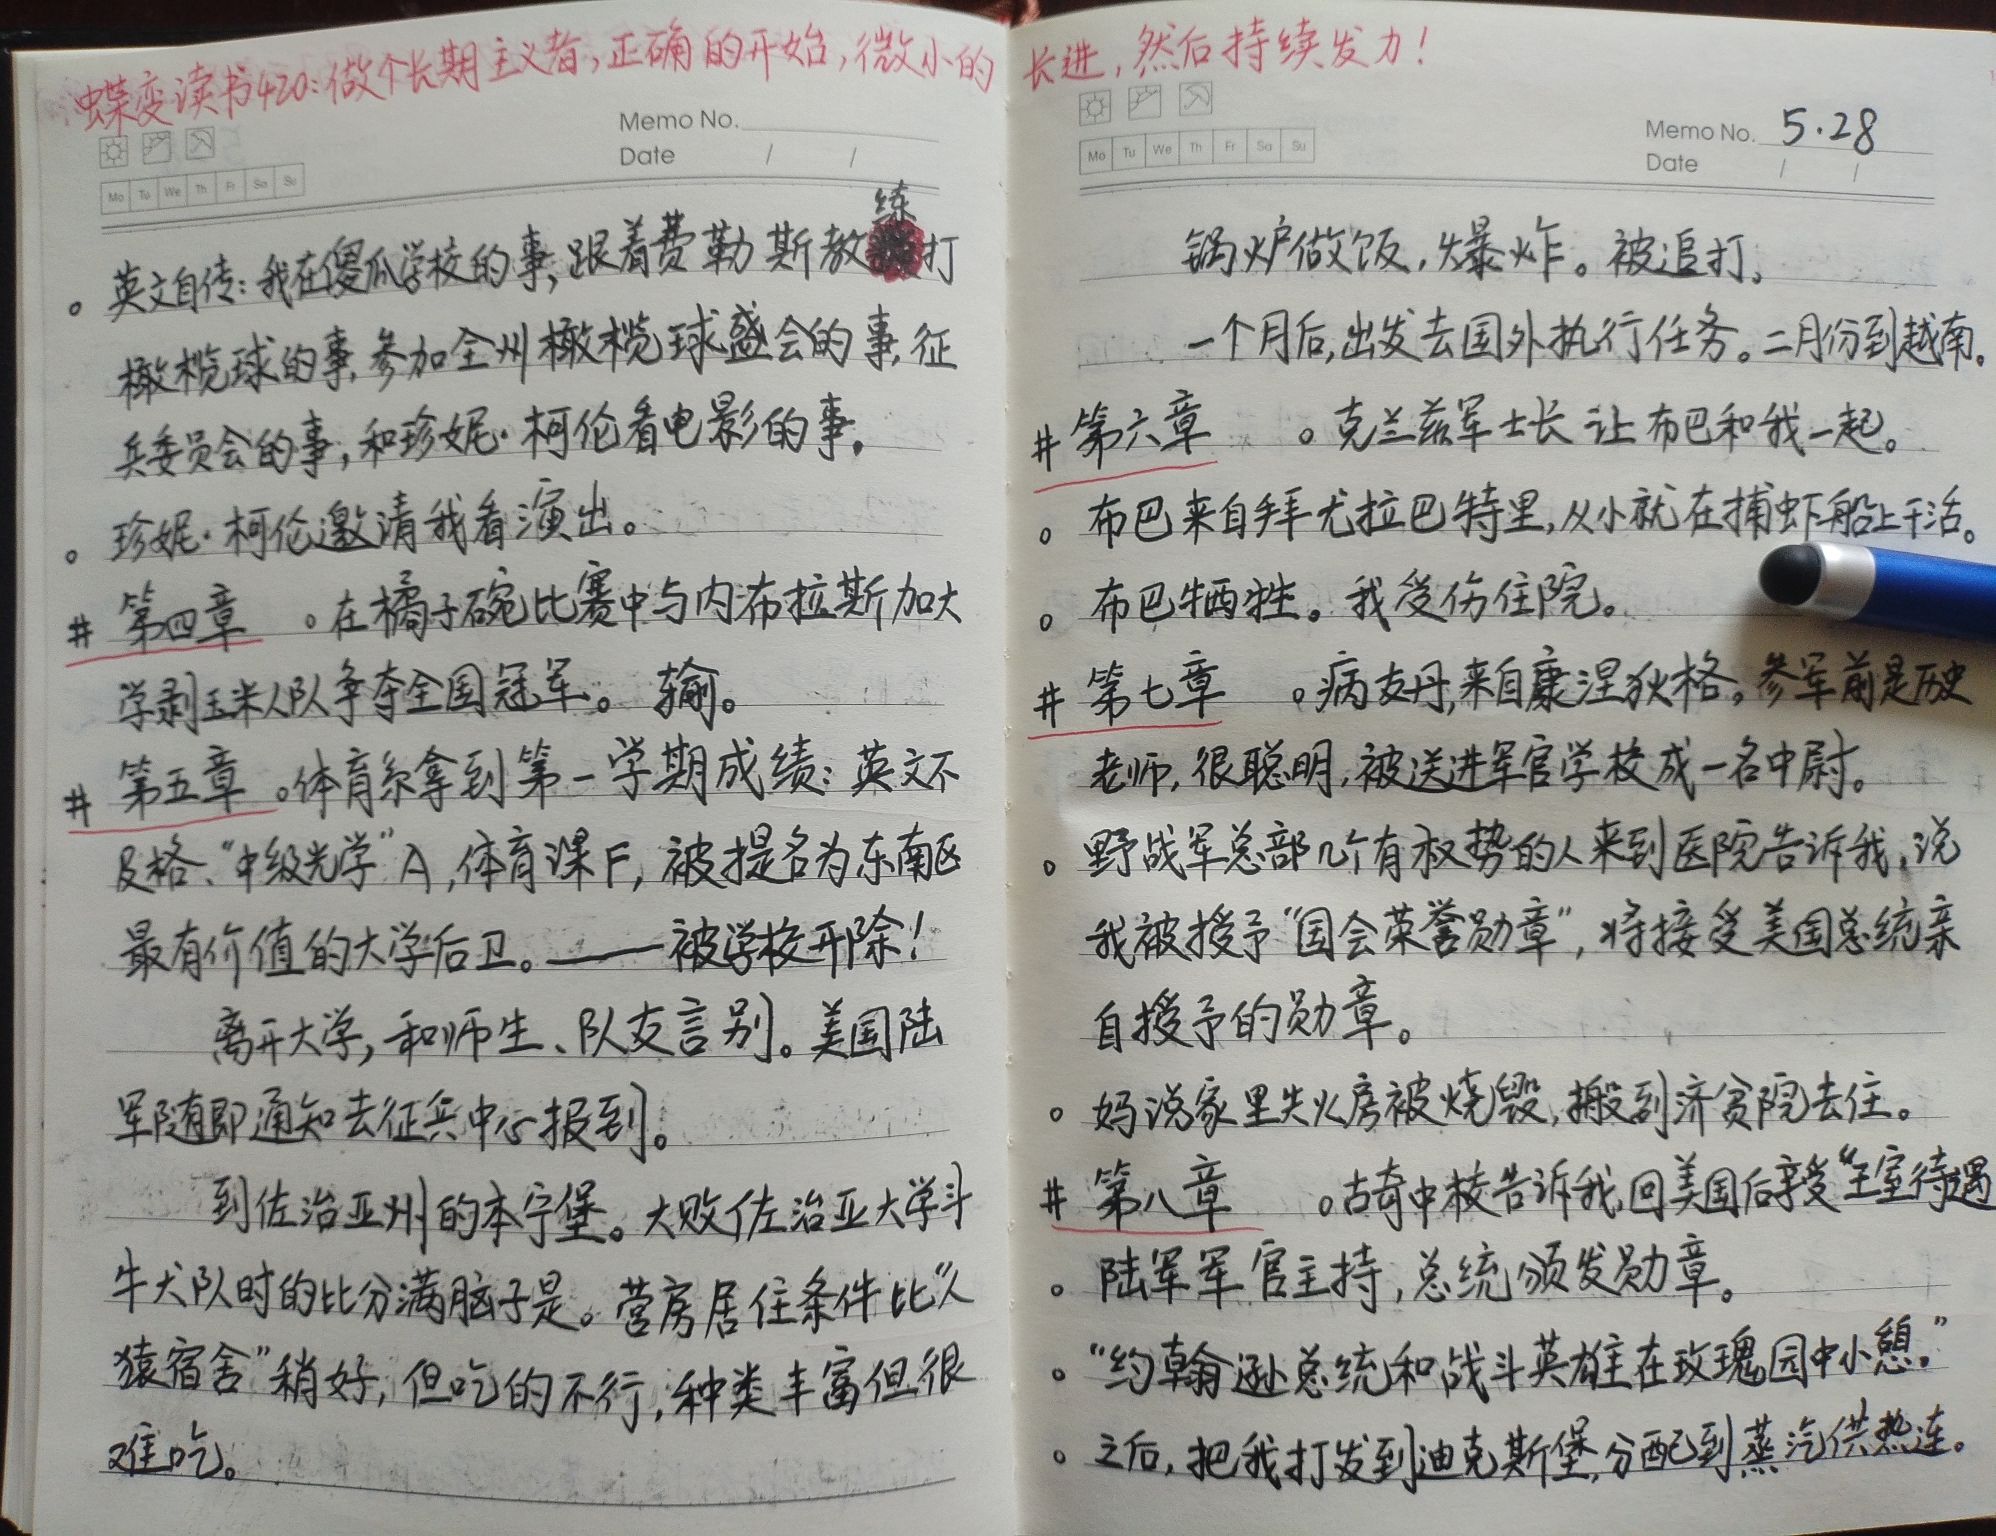 蝶变读书420:做个长期主义者,正确的开始,微小的
Memo No.
Date / /
Mo Tu We Th Fr Sa Su
练
。英文自传:我在傻瓜学校的事,跟着费勒斯教打
橄榄球的事,参加全州橄榄球盛会的事,征
兵委员会的事,和珍妮·柯伦看电影的事。
。珍妮·柯伦邀请我看演出。
# 第四章 。在橘子碗比赛中与内布拉斯加大
学剥玉米人队争夺全国冠军。输。
# 第五章 。体育系拿到第一学期成绩:英文不
及格、“中级光学”A,体育课F,被提名为东南区
最有价值的大学后卫。——被学校开除!
离开大学,和师生、队友言别。美国陆
军随即通知去征兵中心报到。
到佐治亚州的本宁堡。大败佐治亚大学斗
牛犬队时的比分满脑子是。营房居住条件比“人
猿宿舍”稍好,但吃的不行,种类丰富但很
难吃。
长进,然后持续发力!
Memo No. 5.28
Date / /
Mo Tu We Th Fr Sa Su
锅炉做饭,爆炸。被追打。
一个月后,出发去国外执行任务。二月份到越南。
# 第六章 。克兰兹军士长让布巴和我一起。
。布巴来自拜尤拉巴特里,从小就在捕虾船上干活。
。布巴牺牲。我受伤住院。
# 第七章 。病友丹,来自康涅狄格。参军前是历史
老师,很聪明,被送进军官学校成一名中尉。
。野战军总部几个有权势的人来到医院告诉我,说
我被授予“国会荣誉勋章”,将接受美国总统亲
自授予的勋章。
。妈说家里失火房被烧毁,搬到济贫院去住。
# 第八章 。古奇中校告诉我,回美国后享受“王室待遇
。陆军军官主持,总统颁发勋章。
。“约翰逊总统和战斗英雄在玫瑰园中小憩。”
。之后,把我打发到迪克斯堡,分配到蒸汽供热连。